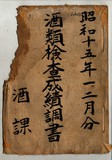 昭和十五年一二月分
酒類檢査成績調書
酒課